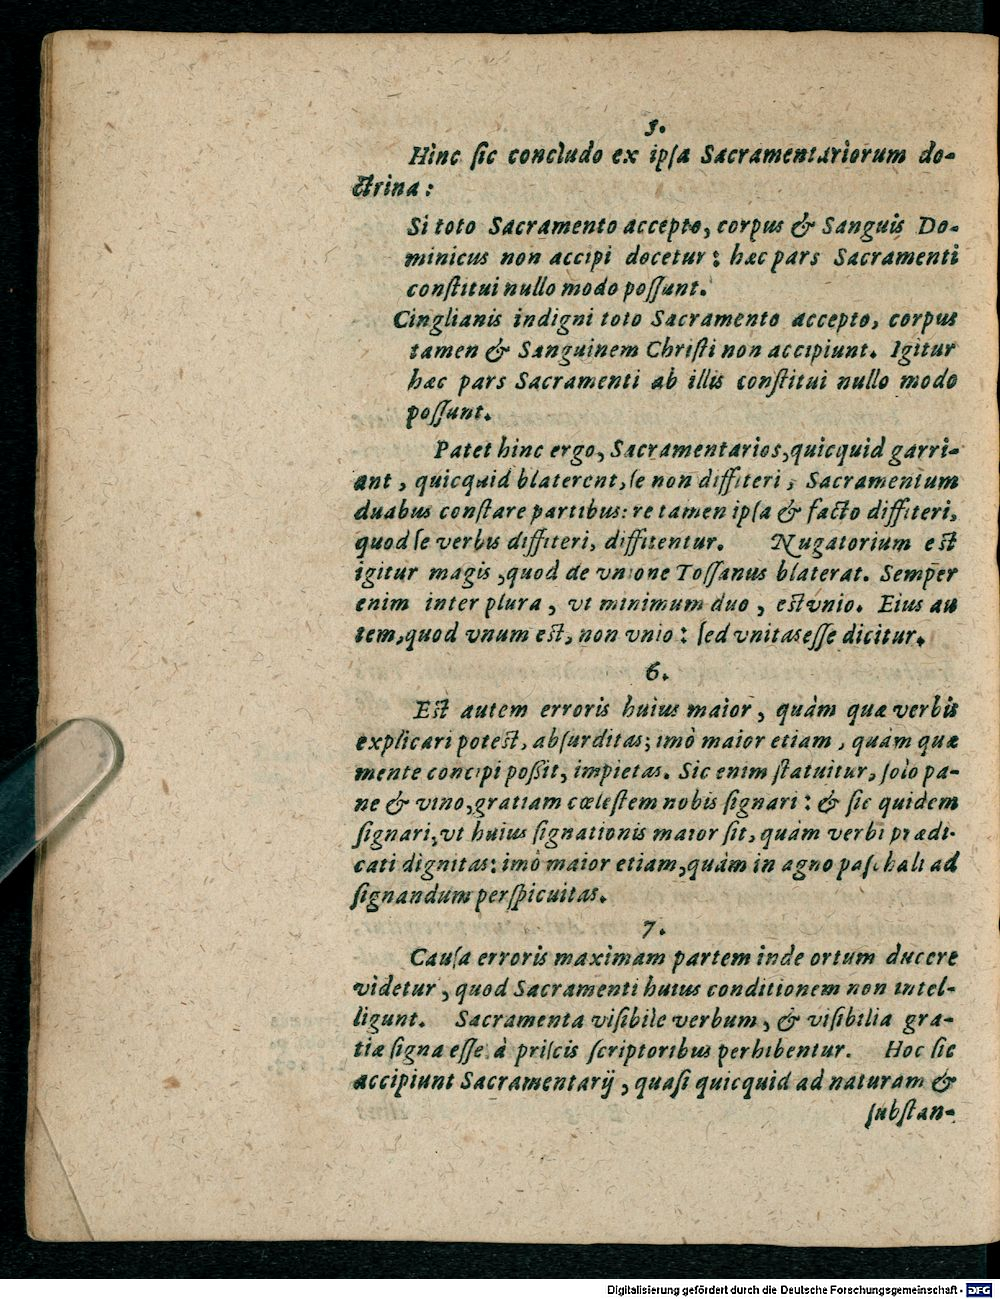 5.
Hinc sic concludo ex ipſa Sacramentariorum do-
ctrina:
Si toto Sacramento accepto, corpus & Sanguis Do-
minicus non accipi docetur: hæc pars Sacramenti
conſtitui nullo modo poſſunt.
Cinglianis indigni toto Sacramento accepto, corpus
tamen & Sanguinem Chriſti non accipiunt. Igitur
hæc pars Sacramenti ab illis conſtitui nullo modo
poſſunt.
Patet hinc ergo, Sacramentarios, quicquid garri-
ant, quicquid blaterent, ſe non diffiteri, Sacramentum
duabus conſtare partibus: re tamen ipſa & facto diffiteri,
quod ſe verbis diffiteri, diffitentur. Nugatorium est
igitur magis, quod de vnione Toſſanus blaterat. Semper
enim inter plura, vt minimum duo, est vnio. Eius au
tem, quod vnum est, non vnio: ſed vnitas eſſe dicitur.
6.
Est autem erroris huius maior, quàm quæ verbis
explicari potest, abſurditas; imò maior etiam, quàm quæ
mente concipi poßit, impietas. Sic enim ſtatuitur, ſolo pa-
ne & vino, gratiam cœleſtem nobis ſignari: & ſic quidem
ſignari, vt huius ſignationis maior ſit, quàm verbi prædi-
cati dignitas: imò maior etiam, quàm in agno paſchali ad
ſignandum perſpicuitas.
7.
Cauſa erroris maximam partem inde ortum ducere
videtur, quod Sacramenti huius conditionem non intel-
ligunt. Sacramenta viſibile verbum, & viſibilia gra-
tiæ ſigna eſſe à priſcis ſcriptoribus perhibentur. Hoc ſic
accipiunt Sacramentarij, quaſi quicquid ad naturam &
ſubſtan-
Digitalisierung gefördert durch die Deutsche Forschungsgemeinschaft - DFG